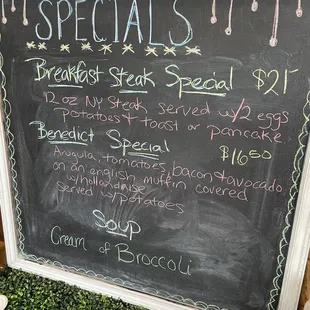 SPECIALS
Breakfast Steak Special $21
12oz NY Steak served w/2 eggs
potatoes + toast or pancake
Benedict Special $16.50
Arugula, tomatoes, bacon + avocado
on an english muffin covered
w/hollandaise
served w/potatoes
Soup
Cream of Broccoli